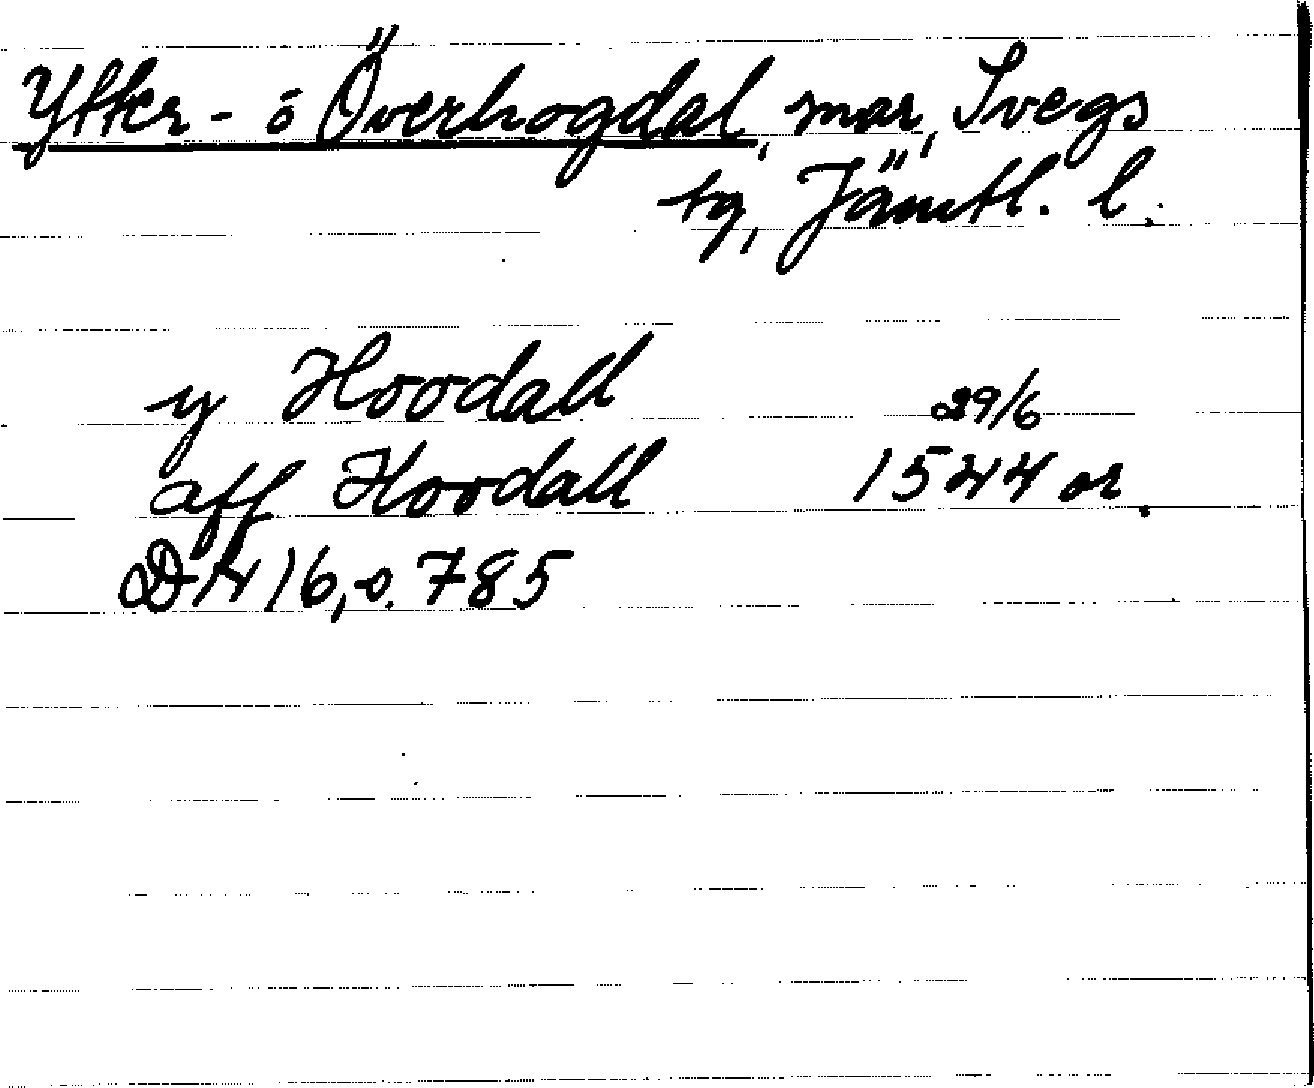 Ytter- o Överhogdal, snar, Svegs
tg, Jämtl. l.
y Hoodall 29/6
aff Hoodall 1544 or.
DN 16, s. 785